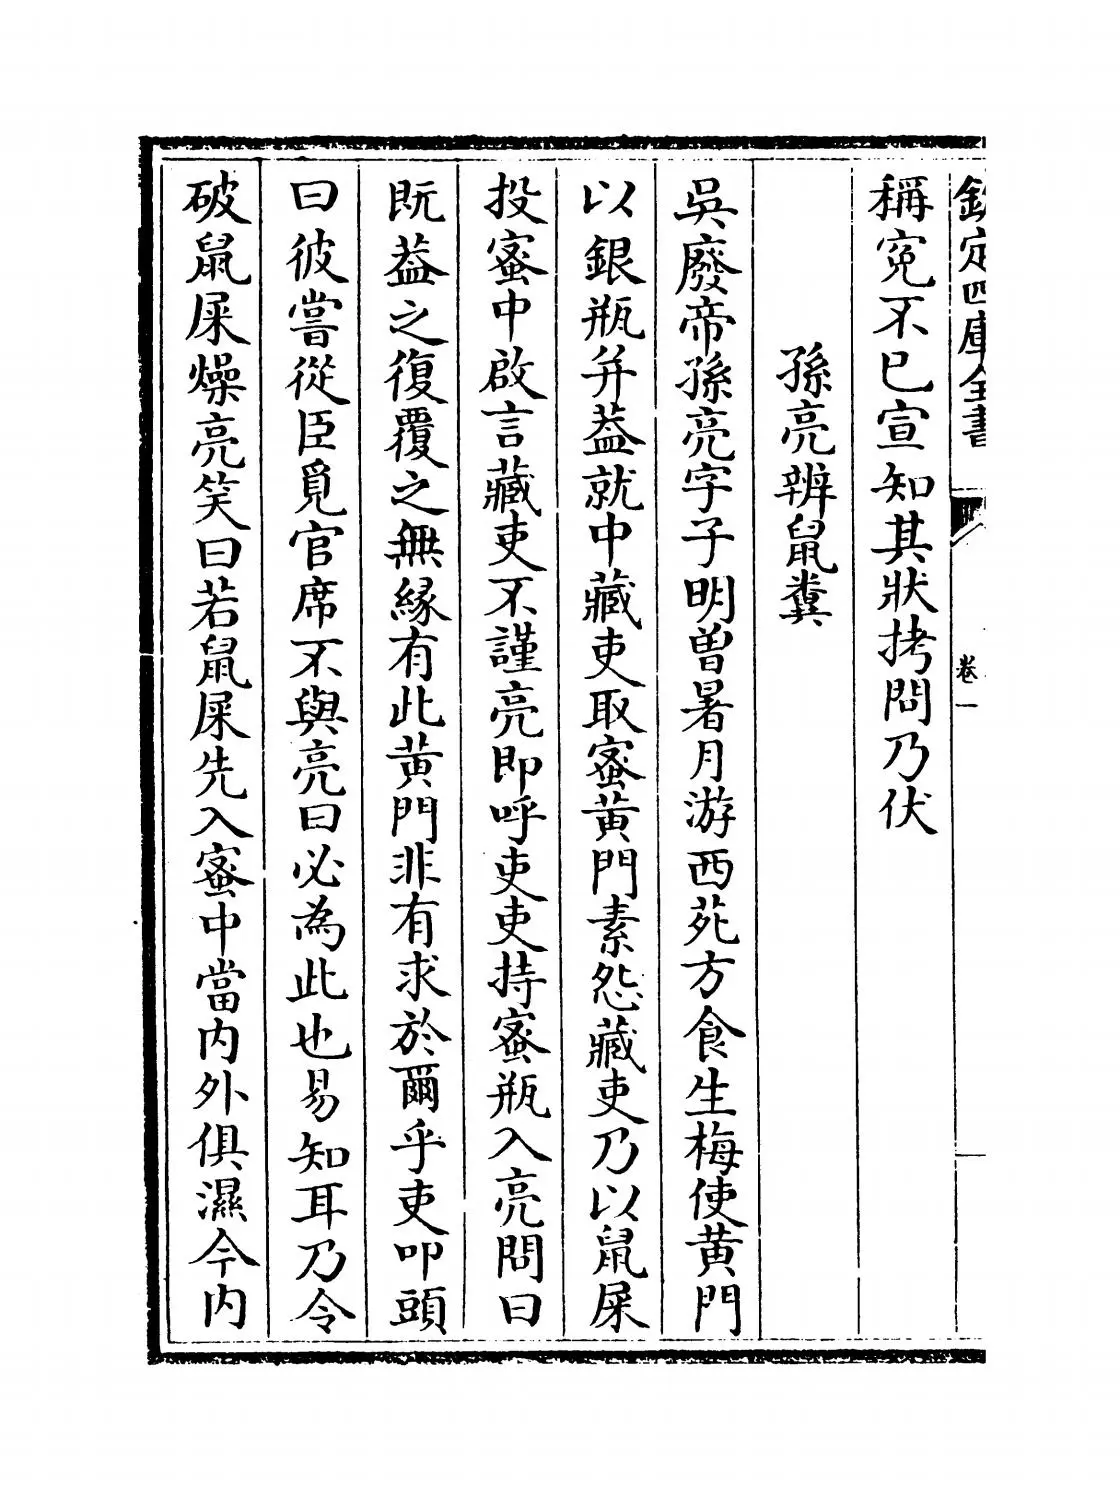 欽定四庫全書
卷一
稱寃不已宣知其狀拷問乃伏
孫亮辨鼠糞
吳廢帝孫亮字子明曽暑月游西苑方食生梅使黄門
以銀瓶并葢就中藏吏取蜜黄門素怨藏吏乃以鼠屎
投蜜中啟言藏吏不謹亮即呼吏吏持蜜瓶入亮問曰
既葢之復覆之無縁有此黄門非有求於爾乎吏叩頭
曰彼嘗從臣覓官席不與亮曰必為此也易知耳乃令
破鼠屎燥亮笑曰若鼠屎先入蜜中當内外俱濕今内